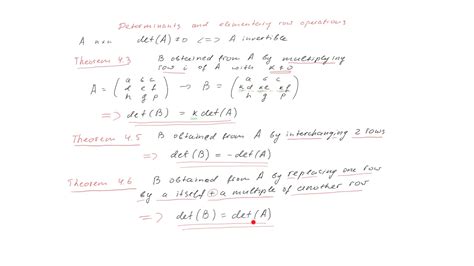 Determinants and elementary row operations
A n×n det(A) ≠ 0 <=> A invertible
Theorem 4.3 B obtained from A by multiplying
row i of A with k ≠ 0
A = ( a b c ; d e f ; h g p ) → B = ( a b c ; kd ke kf ; h g p )
=> det(B) = k det(A)
Theorem 4.5 B obtained from A by interchanging 2 rows
=> det(B) = -det(A)
Theorem 4.6 B obtained from A by replacing one row
by a itself + a multiple of another row
=> det(B) = det(A)